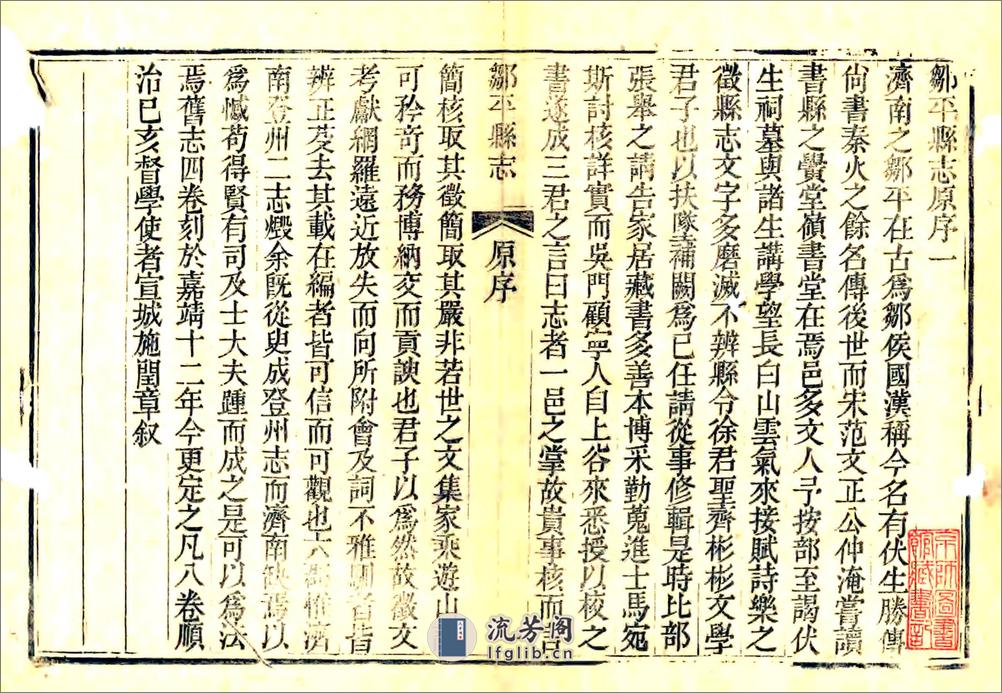 鄒平縣志原序一
濟南之鄒平在古爲鄒侯國漢稱今名有伏生勝傳
尙書秦火之餘名傳後世而宋范文正公仲淹嘗讀
書縣之黌堂嶺書堂在焉邑多文人予按部至謁伏
生祠墓與諸生講學望長白山雲氣來接賦詩樂之
徵縣志文字多磨滅不辨縣令徐君聖齊彬彬文學
君子也以扶墜補闕爲已任請從事修輯是時比部
張舉之請告家居藏書多善本博采勤蒐進士馬宛
斯討核詳實而吳門顧寧人自上谷來悉授以校之
書遂成三君之言曰志者一邑之掌故貴事核而言
鄒平縣志 原序
簡核取其徵簡取其嚴非若世之文集家乘遊山
可矜奇而務博納交而貢諛也君子以爲然故徵文
考獻網羅遠近放失而向所附會及詞不雅馴者皆
辨正芟去其載在編者皆可信而可觀也六惟濟
南登州二志燬余旣從臾成登州志而濟南缺焉以
爲憾苟得賢有司及士大夫踵而成之是可以爲法
焉舊志四卷刻於嘉靖十二年今更定之凡八卷順
治巳亥督學使者宣城施閏章叙
京師圖書
館藏書記
流芳阁
lfglib.cn